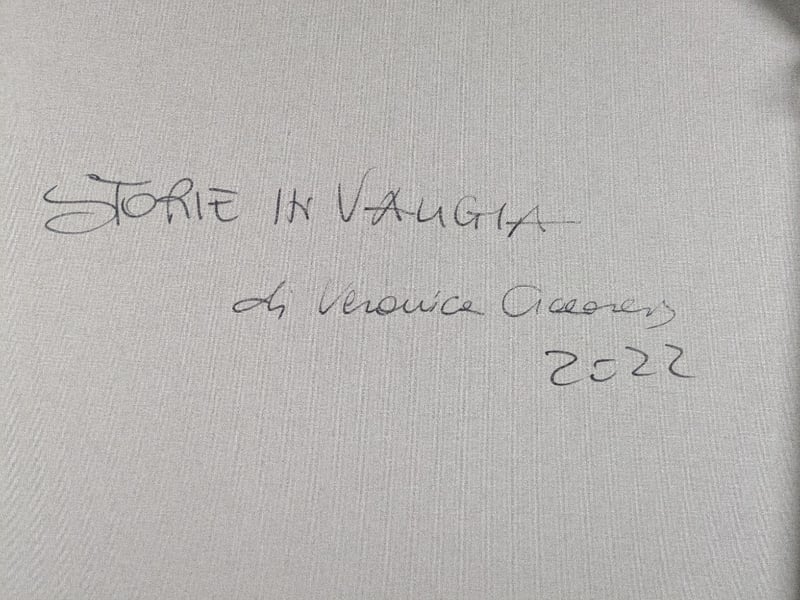 STORIE IN VALIGIA
di Veronica
2022